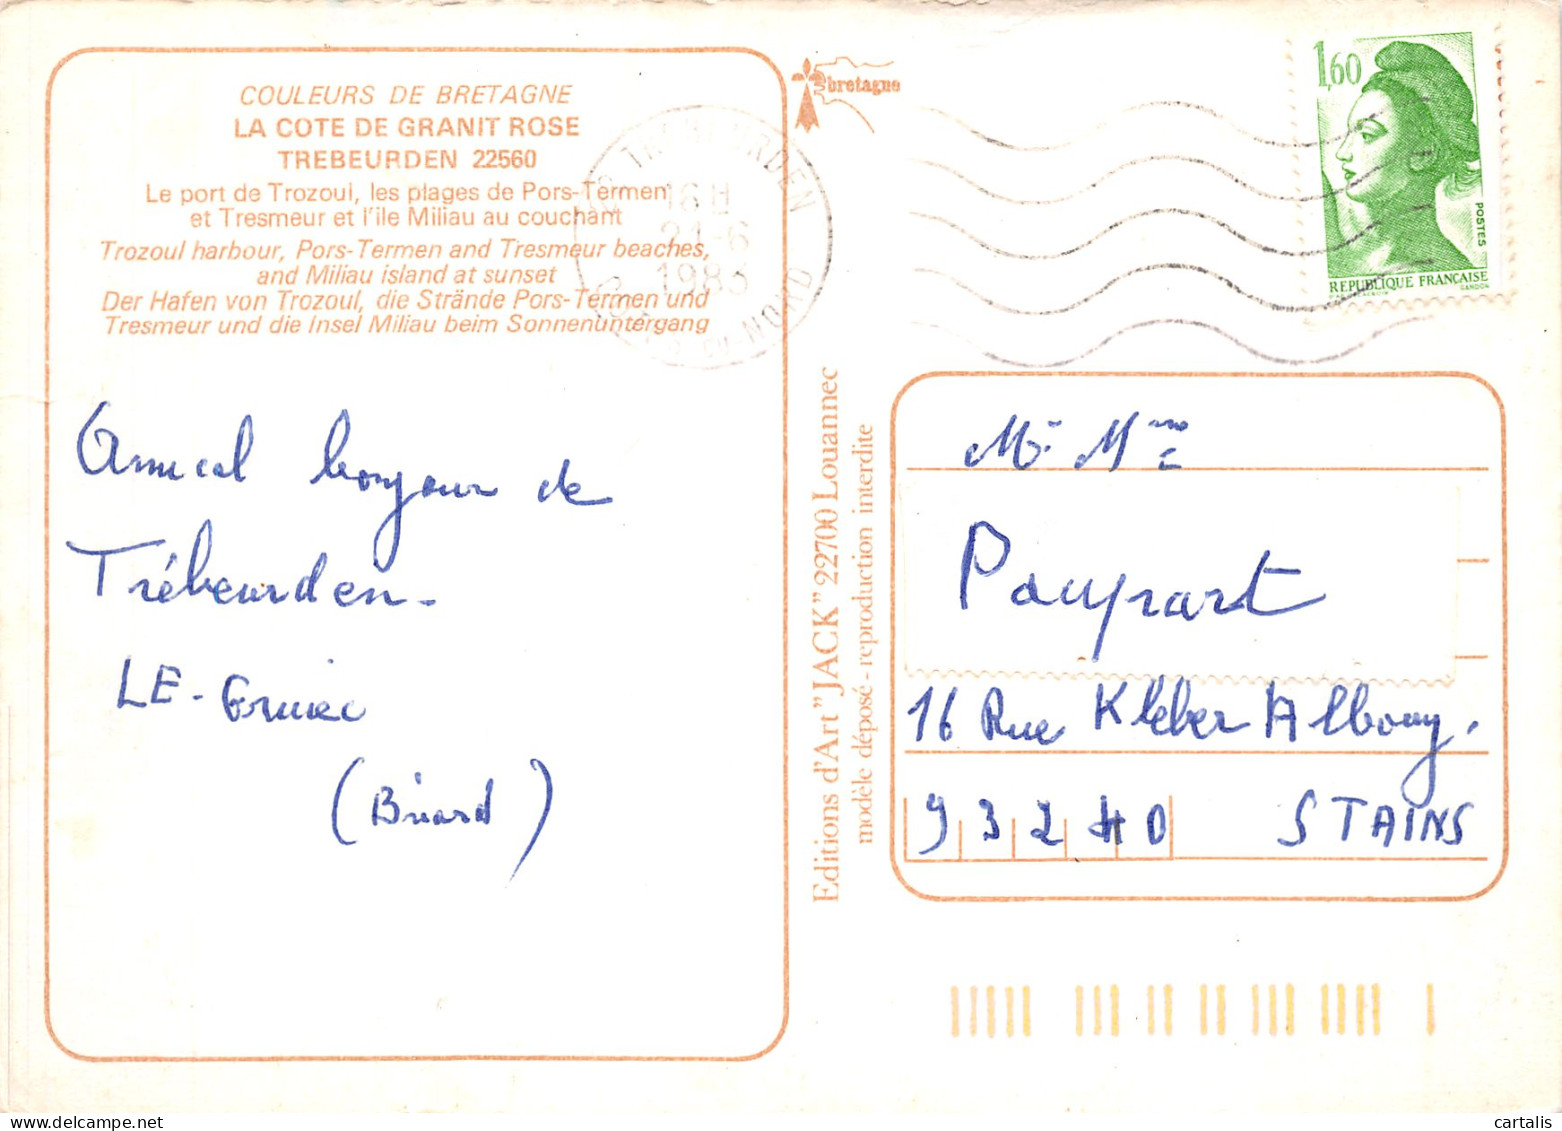 COULEURS DE BRETAGNE
LA COTE DE GRANIT ROSE
TREBEURDEN 22560
Le port de Trozoul, les plages de Pors-Termen
et Tresmeur et l'ile Miliau au couchant
Trozoul harbour, Pors-Termen and Tresmeur beaches,
and Miliau island at sunset
Der Hafen von Trozoul, die Strände Pors-Termen und
Tresmeur und die Insel Miliau beim Sonnenuntergang
Amical bonjour de
Trébeurden-
LE-
(Briard)
Editions d'Art "JACK" 22700 Louannec
modèle déposé - reproduction interdite
bretagne
TREBEURDEN
16 H
21-6
1983
COTES-DU-NORD
1,60
POSTES
REPUBLIQUE FRANÇAISE
GANDON
Mr Mme
Pauprart
16 Rue Kleber Albouy.
93240 STAINS
cartalis